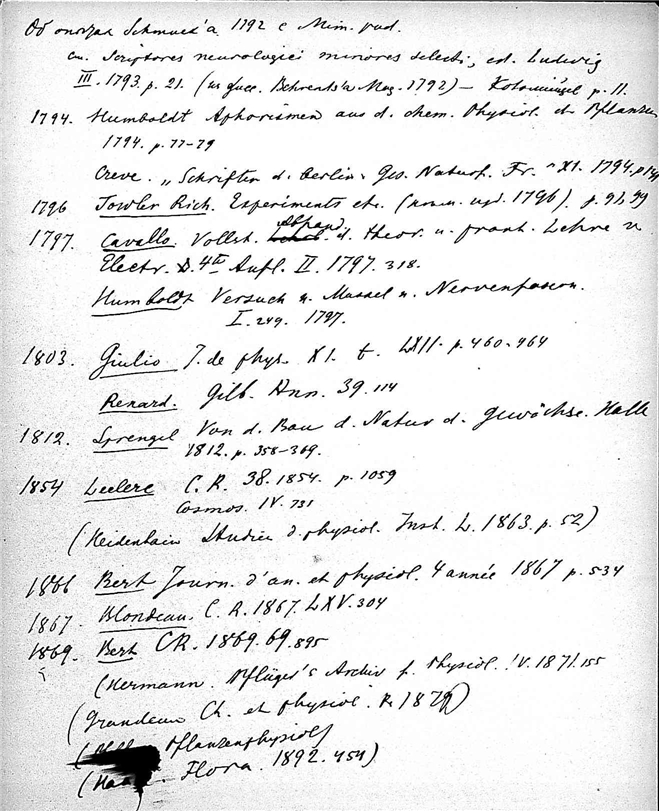 1792 c Mim. pud.
cu. Scriptores neurologici minores selecti, ed. Ludwig
III. 1793. p. 21. Mag. 1792) — p. 11.
1794. Humboldt Aphorismen aus d. chem. Physiol. d. Pflanzen
1794. p. 77-79
Creve. „Schriften d. Berlin. Ges. Naturf. Fr." XI. 1794. p.
1796 Fowler Rich. Experiments etc. 1796). p. 92, 99
1797. Cavallo. Vollst. d. theor. u. prakt. Lehre v
Electr. 4te Aufl. II. 1797. 318.
Humboldt Versuch u. Muskel u. Nervenfasern.
I. 249. 1797.
1803. Giulio J. de phys. XI. t. LXII. p. 460-464
Renard. Gilb. Ann. 39. 114
1812. Sprengel Von d. Bau d. Natur d. Gewächse. Halle
1812. p. 358-369.
1854 Leclerc C. R. 38. 1854. p. 1059
Cosmos. IV. 731
(Heidenhain Studien d. physiol. Inst. 1863. p. 52)
1866 Bert Journ. d'an. et physiol. 4 année 1867 p. 534
1867. Blondeau. C. R. 1867. LXV. 304
1869. Bert CR. 1869. 69. 895
(Hermann. Pflüger's Archiv f. Physiol. IV. 1871. 155
(Grandeau Ch. et physiol.
Pflanzenphysiol)
Flora. 1892. 454)